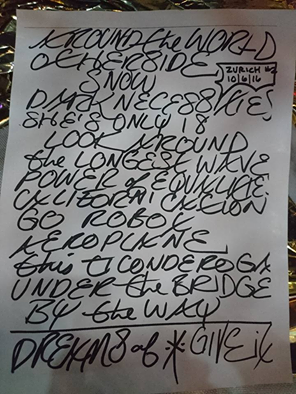 AROUND the WORLD
OTHERSIDE
ZURICH #2
10/6/16
SNOW
DARK NECESSITIES
SHE'S ONLY 18
LOOK AROUND
the LONGEST WAVE
POWER of EQUALITY
CALIFORNICATION
GO ROBOT
AEROPLANE
this TICONDEROGA
UNDER the BRIDGE
BY the WAY
DREAMS of * GIVE it